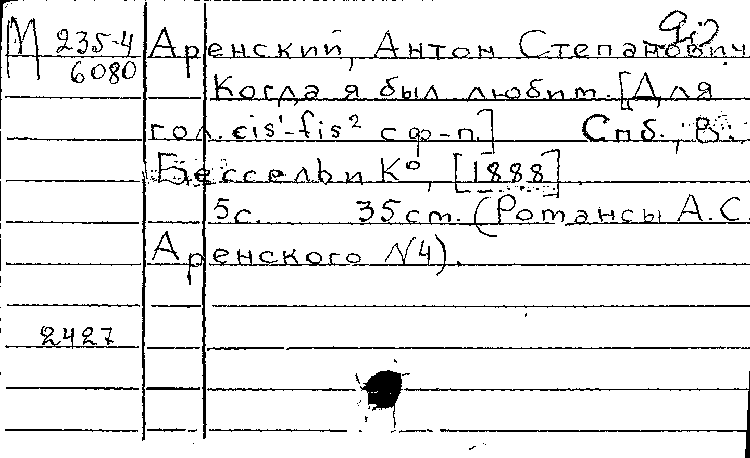 М 235-4 Аренский, Антон Степанович
6080
Когда я был любит. [Для
гол. cis¹-fis² с ф-п.] Спб., В.
Бессель и К°, [1888]
5с. 35 см. (Романсы А.С.
Аренского №4).
2427